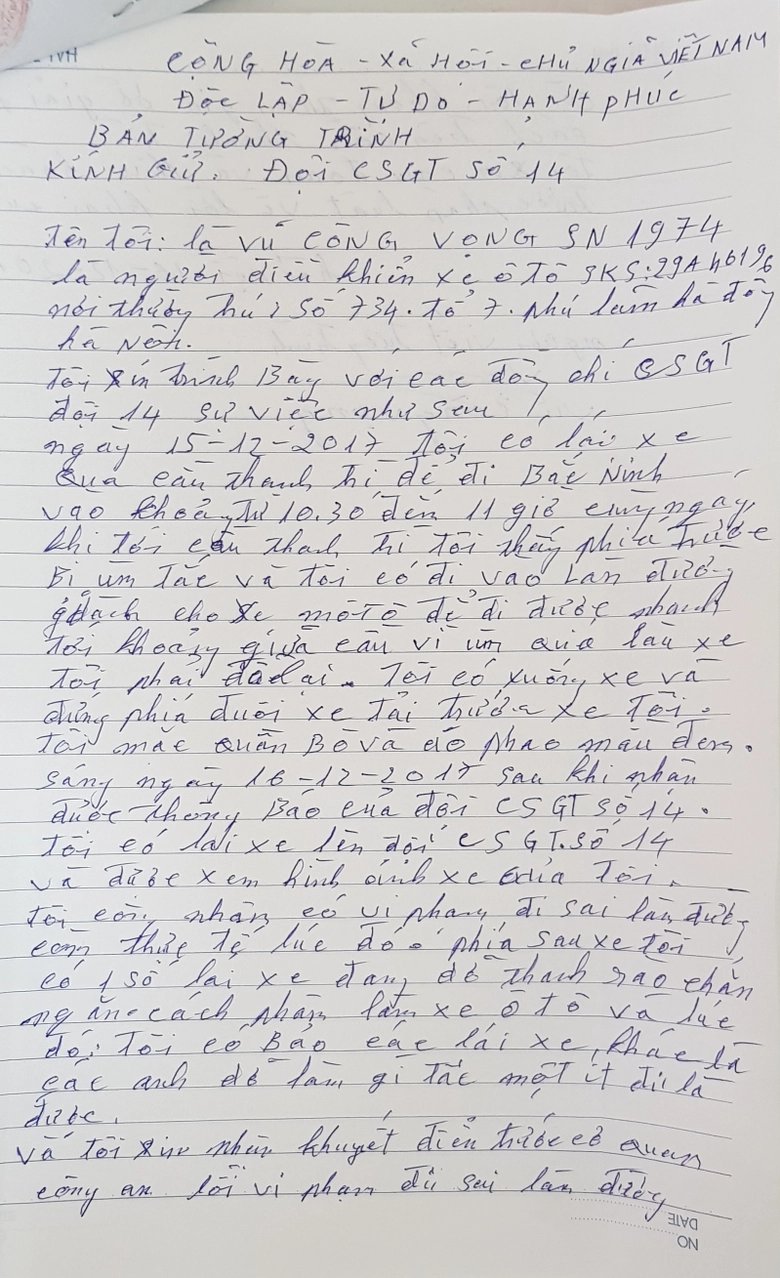 CỘNG HÒA - Xã HỘi - CHỦ NGIÃ VIỆT NAM
ĐỘC LẬP - TỰ DO - HẠNH PHÚC
BẢN TƯỜNG TRÌNH
KÍNH GỬi. Đội CSGT Số 14
Tên tôi: là VŨ CÔNG VỌNG SN 1974
là người điều khiển xe ô tô SKS: 29A
nơi thường thú: Số 734. tổ 7. phú lãm hà đông
hà Nội.
Tôi xin trình Bày với các đồng chí CSGT
đội 14 sự việc như sau
ngày 15-12-2017 tôi có lái xe
Qua cầu thanh trì để đi Bắc Ninh
vào khoảng từ 10.30 đến 11 giờ cùng ngày
khi tới cầu thanh trì tôi thấy phía trước
Bị ùm Tắc và tôi có đi vào Làn đường
dách cho xe môtô để đi được nhanh
tới khoảng giữa cầu vì ùm quá lâu xe
tôi phải đỗ lại. Tôi có xuống xe và
đứng phía dưới xe tải trước xe Tôi.
Tôi mặc quần Bò và áo phao màu đen.
Sáng ngày 16-12-2017 sau khi nhận
được thông Báo của đội CSGT số 14.
Tôi có lái xe lên đội CSGT. số 14
và được xem hình ảnh xe của Tôi.
Tôi công nhận có vi phạm đi sai làn đường
còn thực tế lúc đó ở phía sau xe tôi
có 1 số lái xe đang dỡ thanh rào chắn
ngăn cách phân làn xe ô tô và lúc
đó: Tôi có Bảo các lái xe, khác là
các anh dỡ làm gì tắc một ít đi là
được.
và tôi xin nhận khuyết điểm trước cơ quan
công an lỗi vi phạm đi sai làn đường
NO
DATE